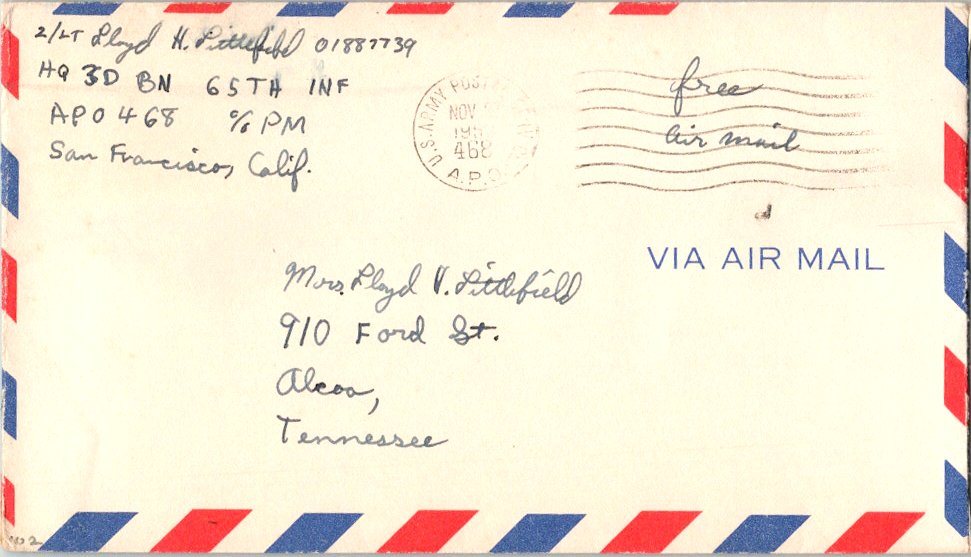 2/LT Lloyd H. Littlefield 01887739
HQ 3D BN 65TH INF
APO 468 c/o PM
San Francisco, Calif.
U.S. ARMY POSTAL
NOV
195
468
A.P.O.
free
air mail
VIA AIR MAIL
Mrs. Lloyd V. Littlefield
910 Ford St.
Alcoa,
Tennessee